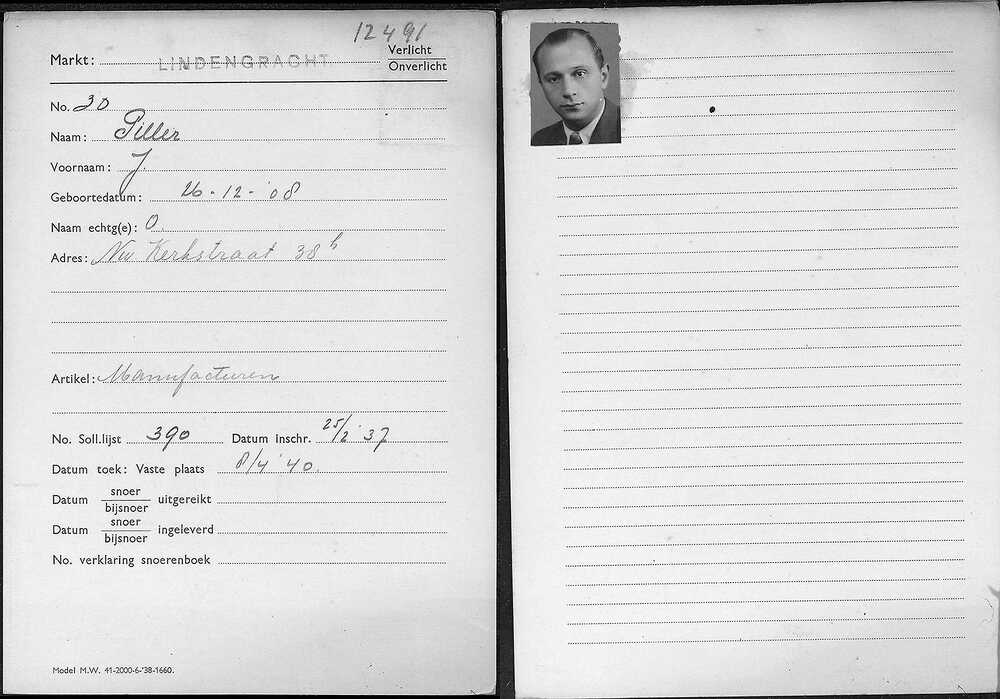 12491
Markt: LINDENGRACHT Verlicht
Onverlicht
No. 30
Naam: Piller
Voornaam: J.
Geboortedatum: 26-12-'08
Naam echtg(e): O.
Adres: Nw Kerkstraat 38h
Artikel: Manufacturen
No. Soll.lijst 390 Datum inschr. 25/2 '37
Datum toek: Vaste plaats 8/4 '40.
Datum snoer uitgereikt
bijsnoer
Datum snoer ingeleverd
bijsnoer
No. verklaring snoerenboek
Model M.W. 41-2000-6-'38-1660.